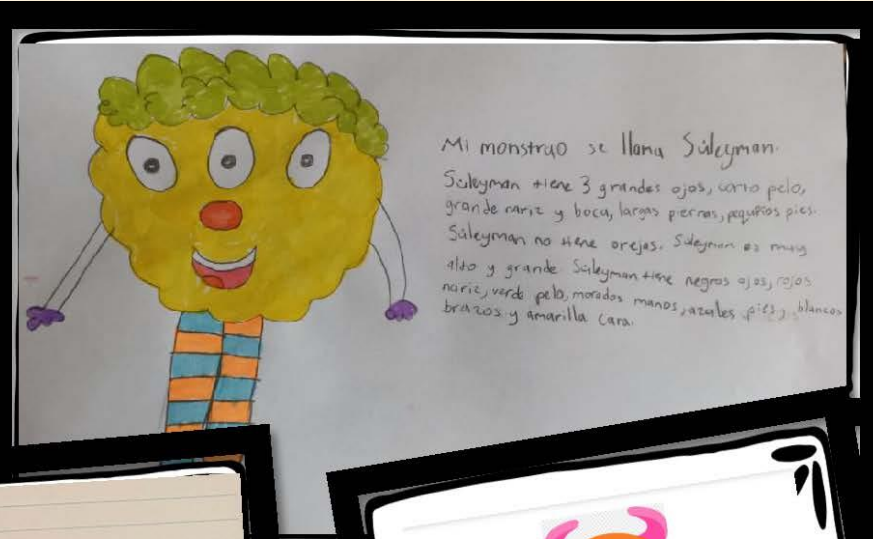 Mi monstruo se llama Süleyman.
Süleyman tiene 3 grandes ojos, corto pelo,
grande nariz y boca, largas piernas, pequeños pies.
Süleyman no tiene orejas. Süleyman es muy
alto y grande Süleyman tiene negros ojos, rojos
nariz, verde pelo, morados manos, azules pies, blancos
brazos y amarilla cara.